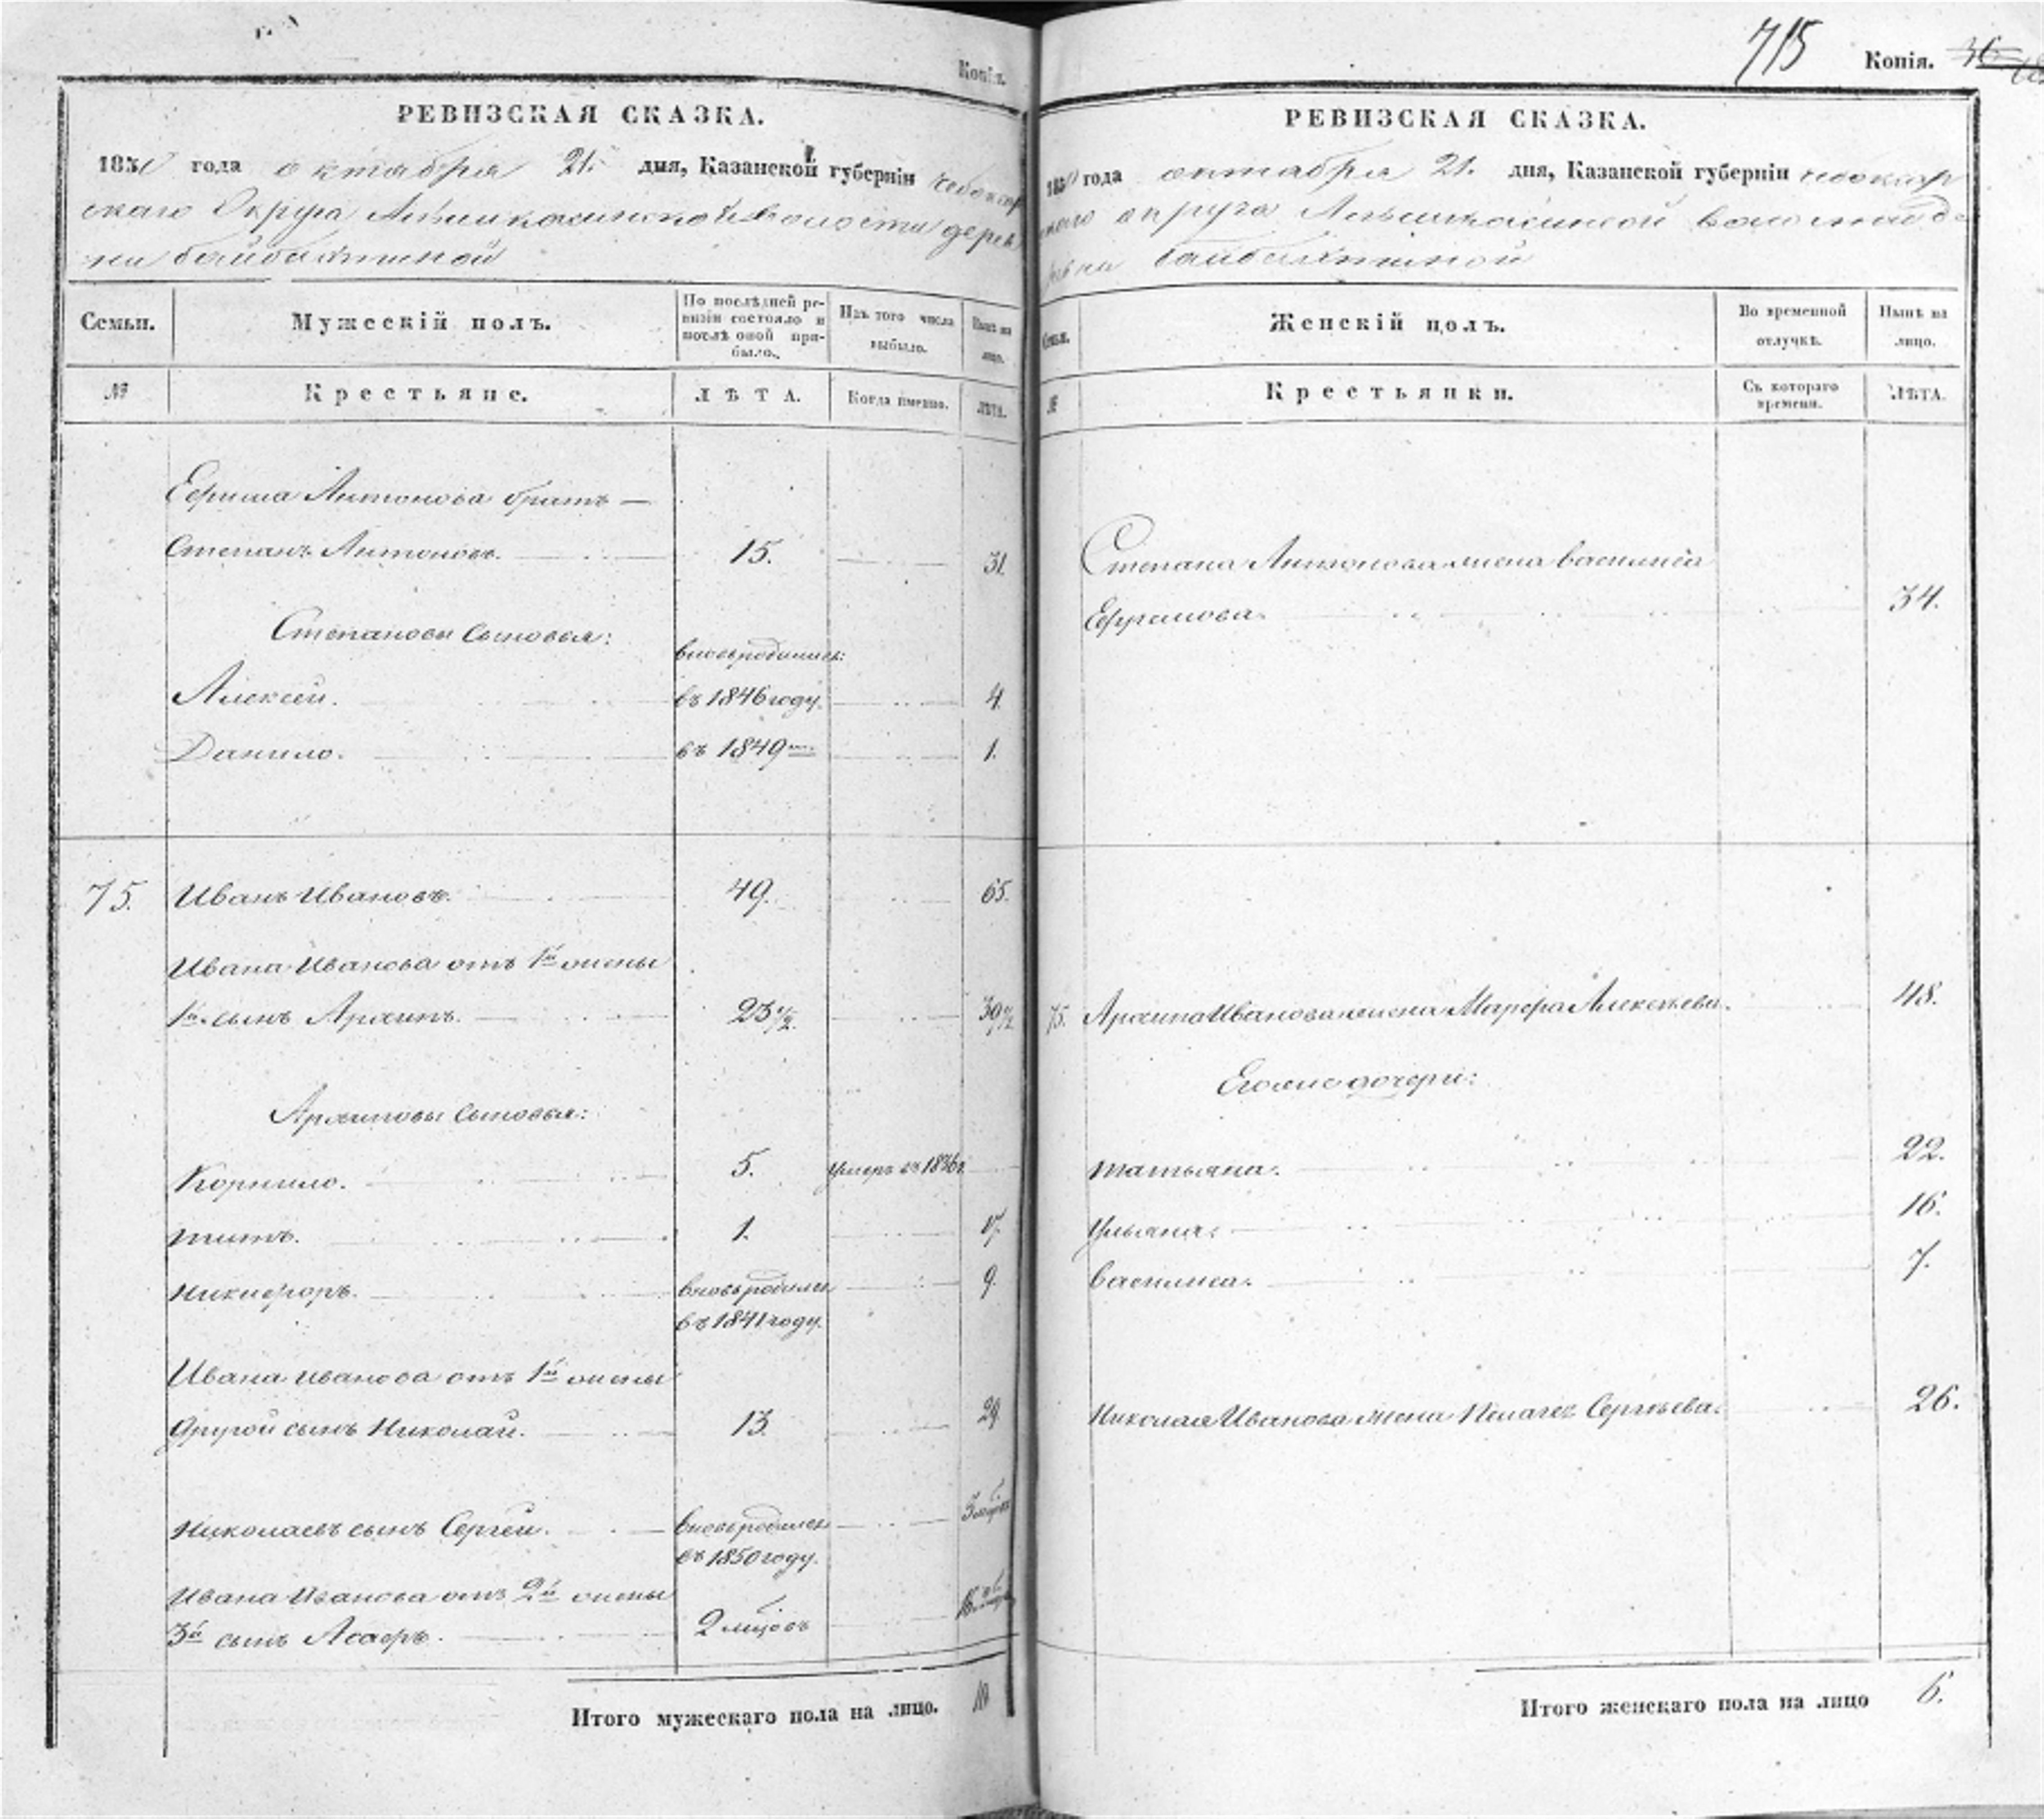 Копія.
РЕВИЗСКАЯ СКАЗКА.
1850 года октября 21 дня, Казанской губерніи Чебоксар
скаго Округа волости дерев
ни Байбахтиной
Семьи.
Мужескій полъ.
По послѣдней ре-
визіи состояло и
послѣ оной при-
было.
Изъ того числа
выбыло.
Нынѣ на
лицо.
№
Крестьяне.
ЛѢТА.
Когда именно.
ЛѢТА.
Ефима Антонова братъ —
Степанъ Антоновъ. 15. 31.
Степановы сыновья:
вновь родились:
Алексей. въ 1846 году. 4.
Данило. въ 1849 1.
75. Иванъ Ивановъ. 49. 65.
Ивана Иванова отъ 1й жены
1й сынъ Архипъ. 23 1/2. 39 1/2
Архиповы сыновья:
Корнило. 5. умеръ въ 1836 г.
Титъ. 1. 17.
Никифоръ. вновь родился 9.
въ 1841 году.
Ивана Иванова отъ 1й жены
другой сынъ Николай. 13. 29
Николаевъ сынъ Сергей. вновь родился
въ 1850 году.
Ивана Иванова отъ 2й жены
3й сынъ 2 мѣсяцъ
Итого мужескаго пола на лицо. 10
715 Копія.
РЕВИЗСКАЯ СКАЗКА.
1850 года октября 21. дня, Казанской губерніи Чебоксар
скаго округа волости де
ревни Байбахтиной
Семьи.
Женскій полъ.
Во временной
отлучкѣ.
Нынѣ на
лицо.
№
Крестьянки.
Съ котораго
времени.
ЛѢТА.
Степана Антонова жена Василиса
Ефремова. 34.
75. Архипа Иванова жена Марфа Алексѣева. 48.
Его же дочери:
Татьяна. 22.
Ульяна. 16.
Василиса. 7.
Николая Иванова жена Пелагея Сергѣева. 26.
Итого женскаго пола на лицо 6.